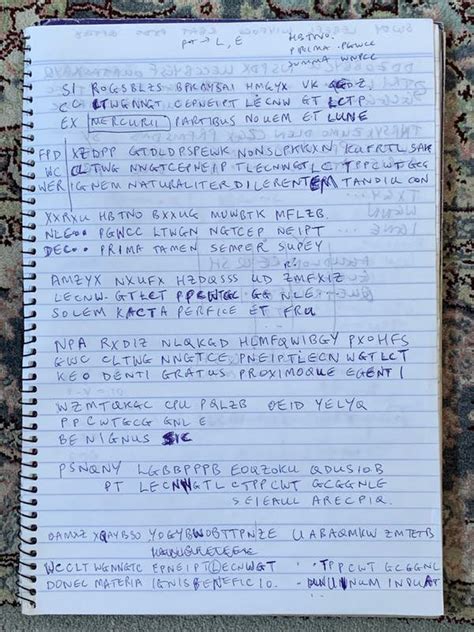 pt → L, E HBTNO.
PRIMA. PGWCC
SUMMA WNPCC
SI ROGSBLZS BPKNYBAI HMGYX VK
CC LTWGNNGT CEPNEIPT LECNW GT LCTP
EX MERCURII PARTIBUS NOUEM ET LUNE
FPD XZDPP GTDLDPSPEWK NONSLPKKXN KUFRTL SAK
WC CLTWG NNGTCEPNEIP TLECNNWGTL C TPPCWTGCG
WER IGNEM NATURALITER DILERENTEM TANDIU CON
XXRXU HBTNO BXXUG MUWBTK MFLZB.
NLE.. PGWCC LTWGN NGTCEP NEIPT
DEC.. PRIMA TAMEN SEMPER SUPEY
AMZYX NXUFX HZDQSSS UD ZMFXIZ
LECNW. GTLCT PPCWTGC GG NLE
SOLEM KACTA PERFICE ET FRU
NPA RXDIZ NLQKGD HLMFQWIBGY PXOHFS
GWC CLTWG NNGTCE PNEIPTLECN WGTLCT
KEO DENTI GRATUS PROXIMOQUE EGENTI
WZMTQKGC CPU PQLZB OEID YELYQ
PPCWTGCG GNLE
BENIGNUS SIC
PSNQNY LGBBPPPB EOQZOKU QDUSIOB
PT LECNNGTL CTPPCWT GCGGNLE
SEIEAUL ARECPIQ.
DAMXZ XQAYBSO YOGYBWOBTTPNZE UABAQMKW ZMTETB
WCCLT WGNNGTC EPNEIPTLECNWGT TPPCWT GCGGNL
DONEC MATERIA IGNISBENEFICIO.